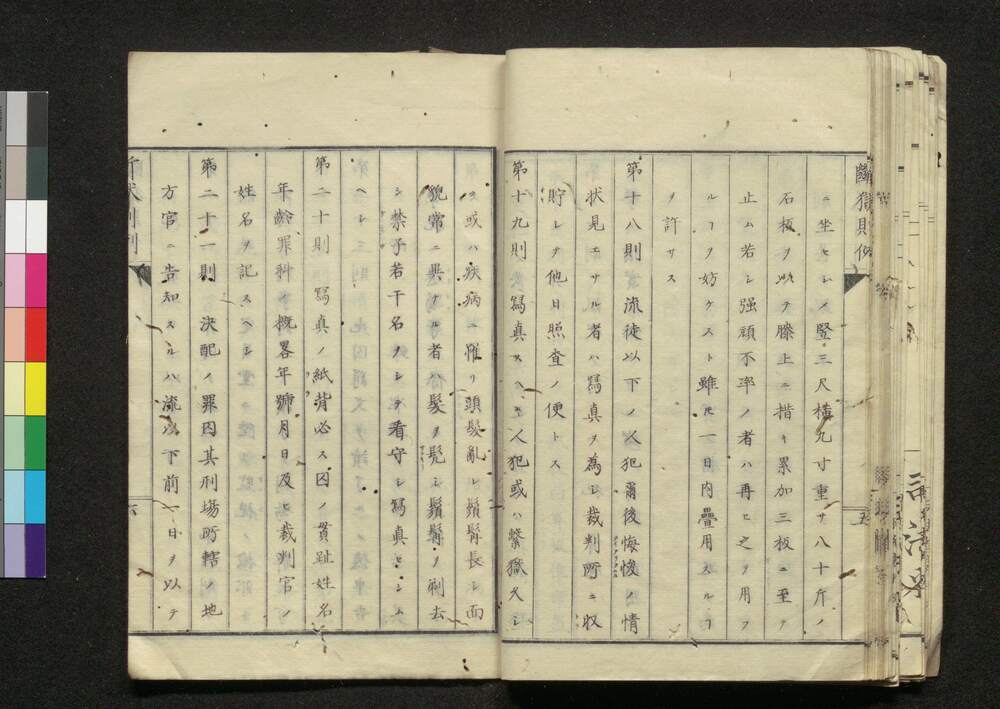 ニ坐セシメ竪三尺横九寸重サ八十斤ノ
石板ヲ以テ膝上ニ措キ累加三板ニ至テ
止ム若シ强頑不率ノ者ハ再ヒ之ヲ用フ
ルヿヲ妨ケスト雖モ一日内疊用スルヿ
ヲ許サス
第十八則 流徒以下ノ人犯爾後悔悛ノ情
状見エサル者ハ寫真ヲ為シ裁判所ニ収
貯シテ他日照査ノ便トス
第十九則 寫真スヘキ人犯或ハ繋獄久シ
ク或ハ疾病ニ罹リ頭髪亂レ鬚髯長シ面
貌常ニ異ナル者ハ髪ヲ髠シ鬚髯ヲ剃去
シ禁子若干名ヲシテ看守シ寫真セシム
ヘシ
第二十則 寫真ノ紙背必ス囚ノ貫趾姓名
年齢罪科事概畧年號月日及ヒ裁判官ノ
姓名ヲ記スヘシ
第二十一則 決配ノ罪囚其刑場所轄ノ地
方官ニ告知スルハ流以下前一日ヲ以テ
六